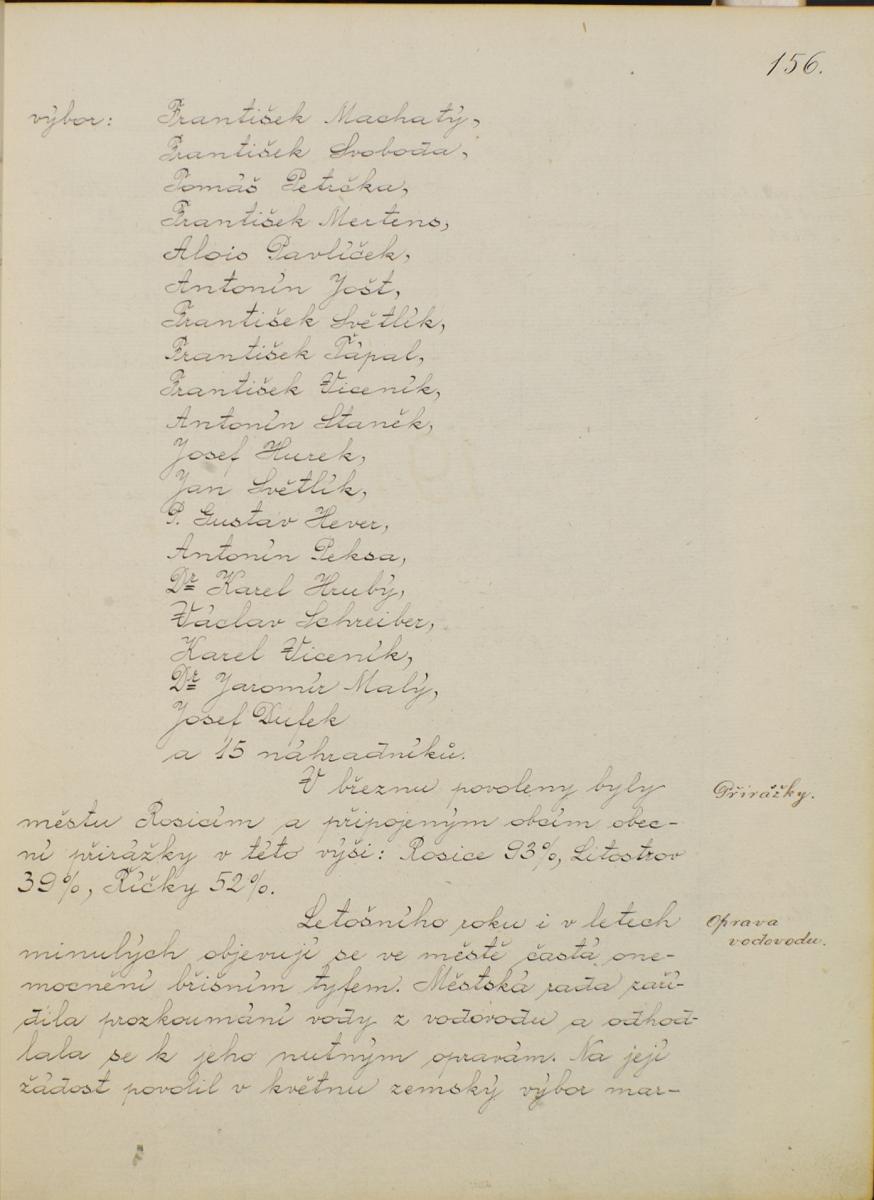 156.
výbor: František Machatý,
František Svoboda,
Tomáš Petrčka,
František Mertens,
Alois Pavlíček,
Antonín Jošt,
František Světlík,
František Ťápal,
František Viceník,
Antonín Staněk,
Josef Hurek,
Jan Světlík,
P. Gustav Hever,
Antonín Peksa,
Dr Karel Hrubý,
Václav Schreiber,
Karel Viceník,
Dr Jaromír Malý,
Josef Dufek
a 15 náhradníků.
V březnu povoleny byly
Přirážky.
městu Rosicím a připojeným obcím obec-
ní přirážky v této výši: Rosice 93%, Litostrov
39%, Říčky 52%.
Letošního roku i v letech
Oprava
vodovodu.
minulých objevují se ve městě častá one-
mocnění břišním tyfem. Městská rada zaří-
dila prozkoumání vody z vodovodu a odhod-
lala se k jeho nutným opravám. Na její
žádost povolil v květnu zemský výbor mar-